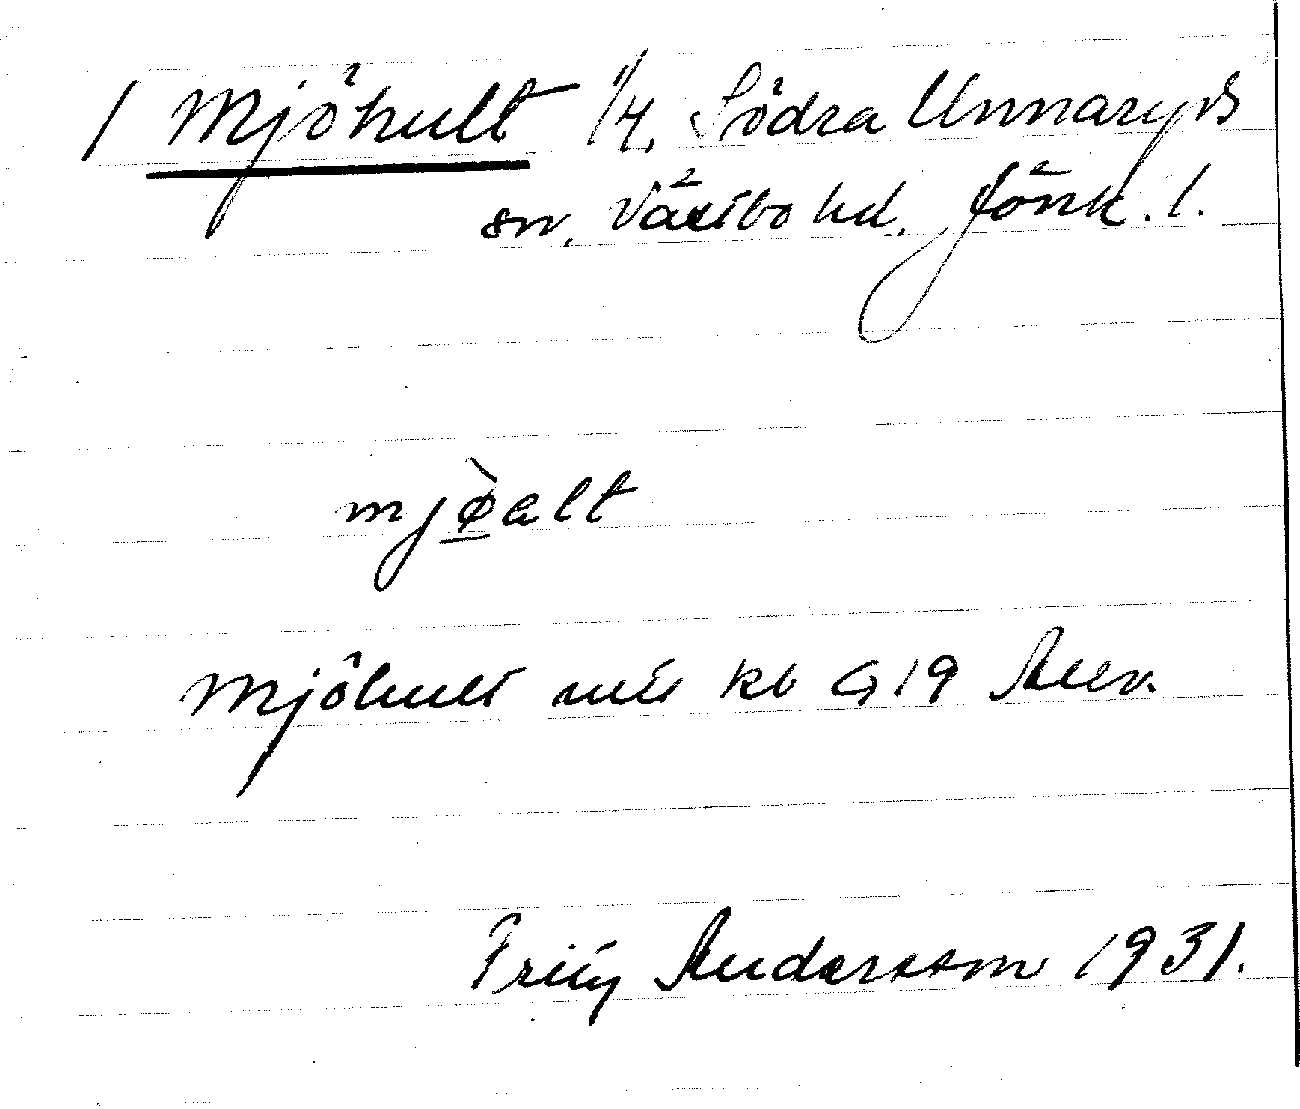 / Mjöhult 1/4. Södra Unnaryds
sn. Västbo hd. Jönk. l.
mjø̀alt
Mjöhult kb G 19
Andersson 1931.